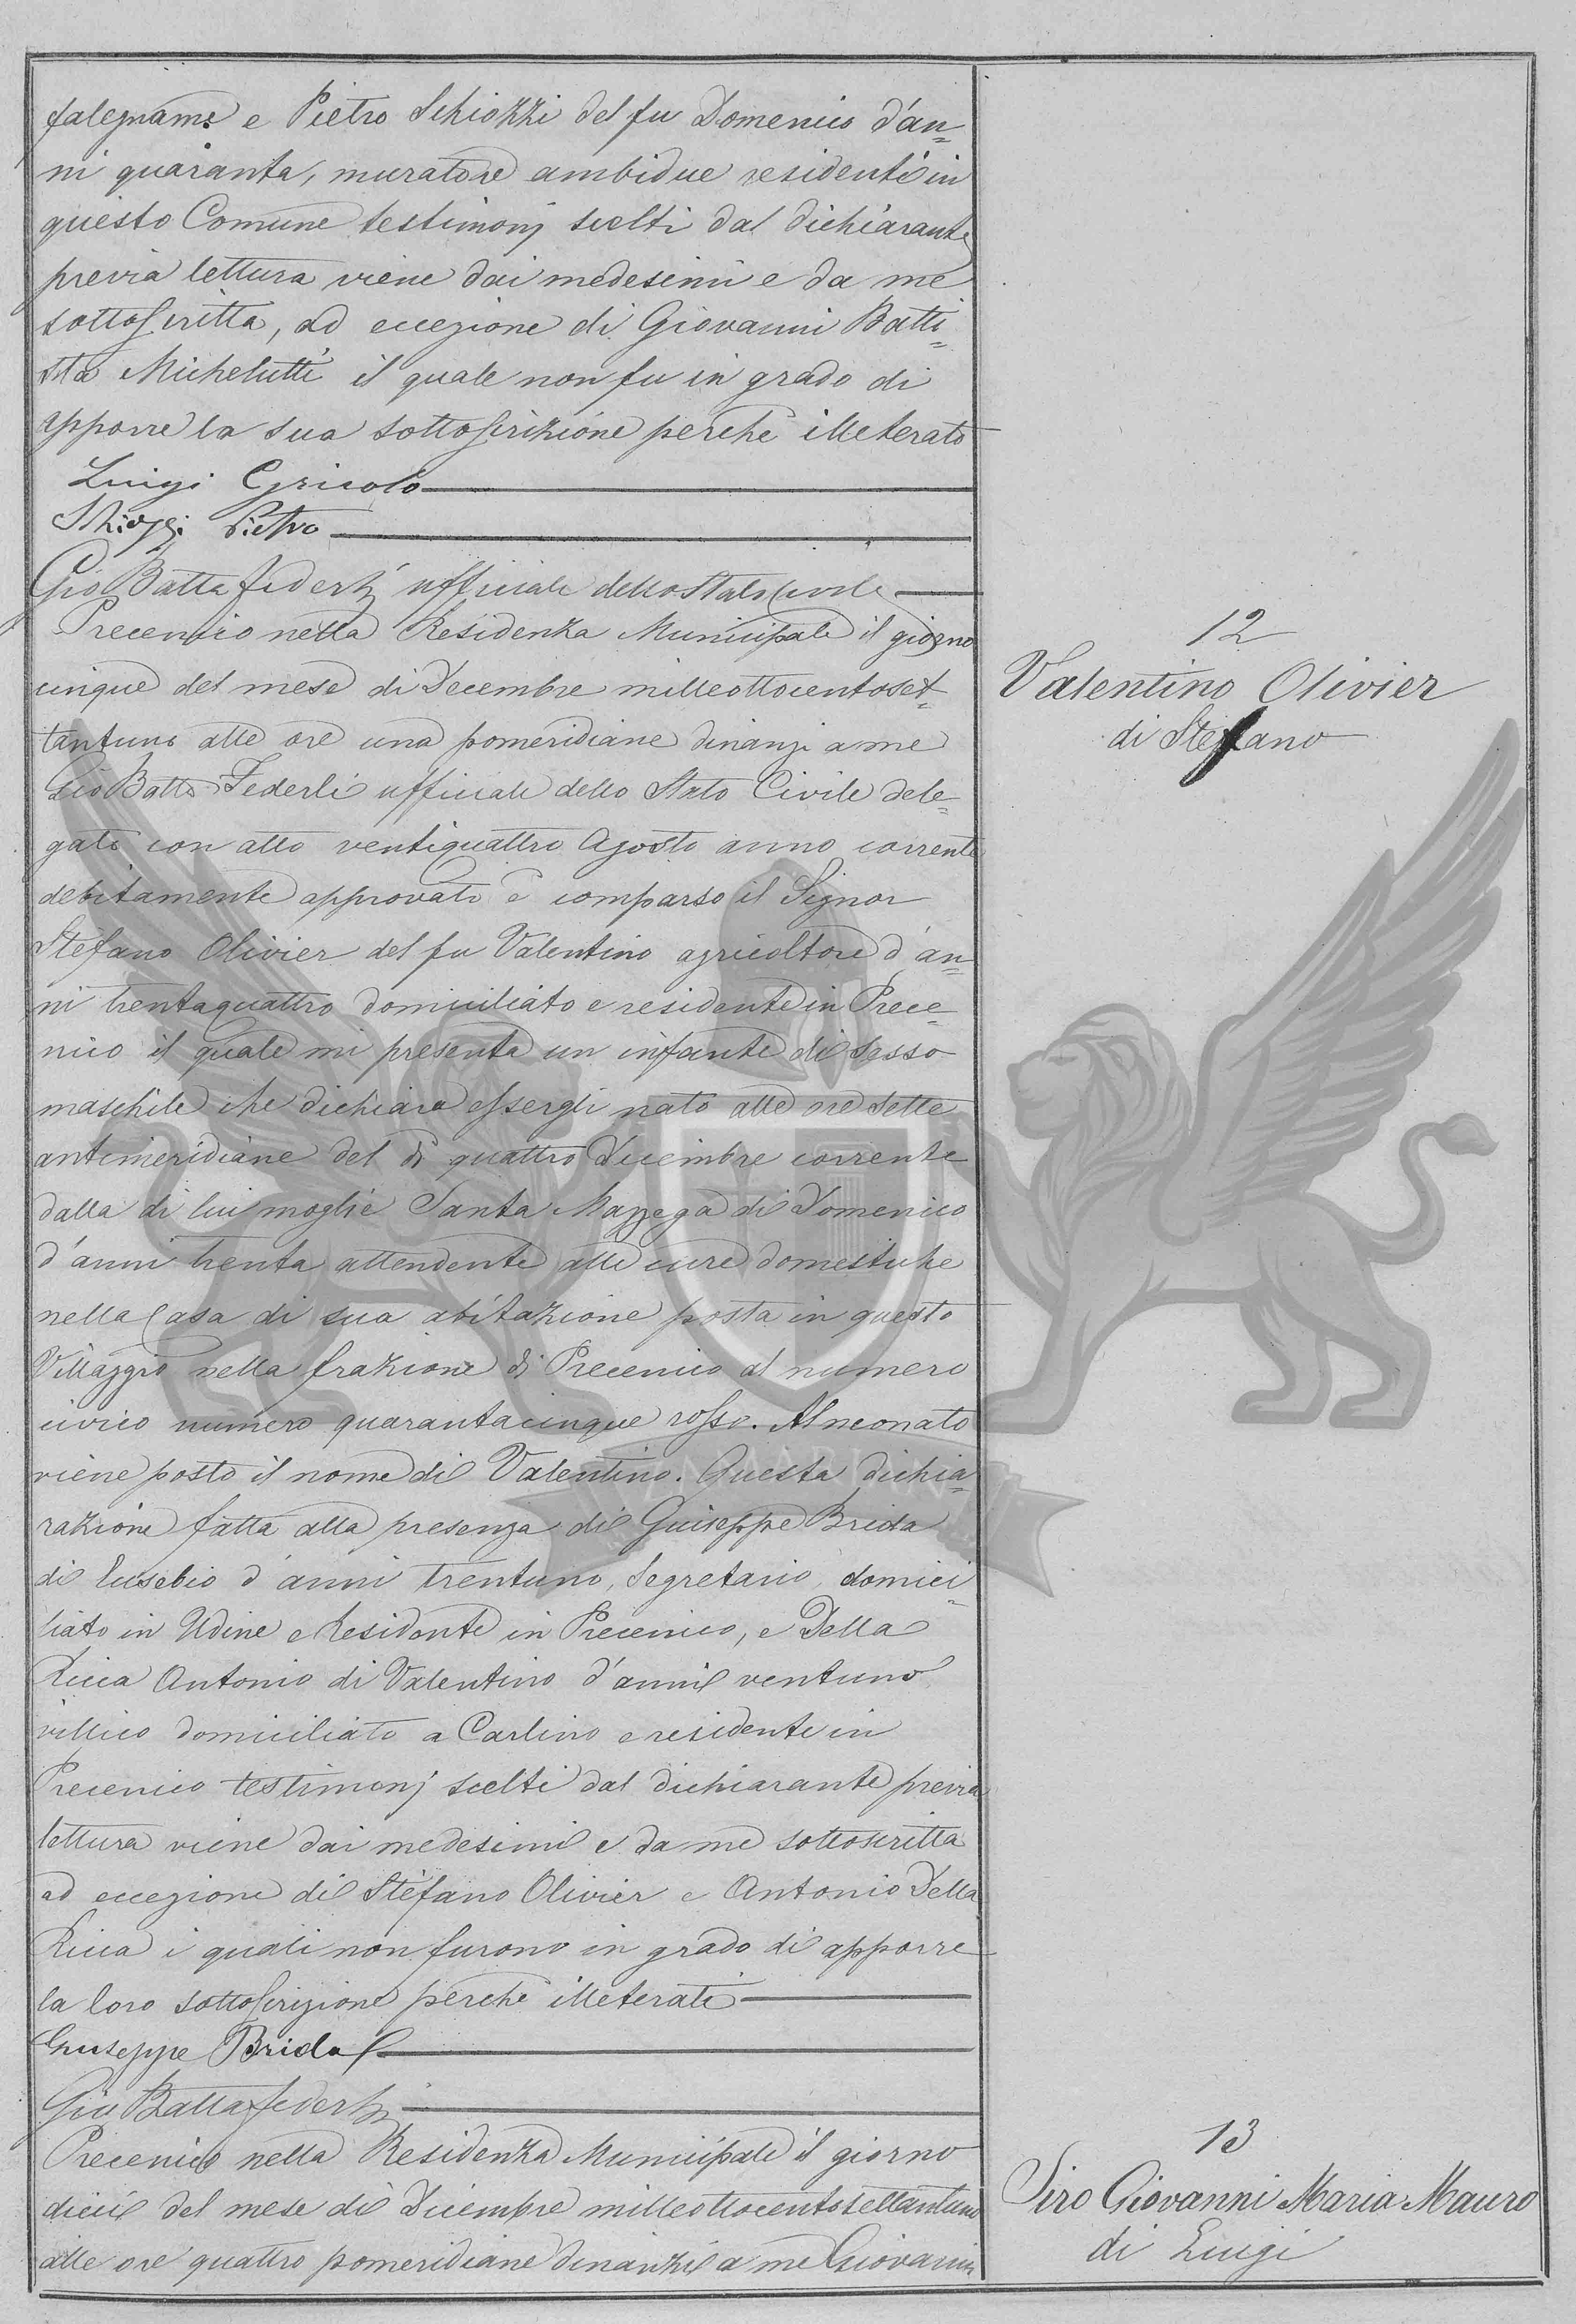 falegname e Pietro Schiozzi del fu Domenico d'an=
ni quaranta, muratore ambidue residenti in
questo Comune testimonj scelti dal dichiarante
previa lettura viene dai medesimi e da me
sottoscritta, ad eccezione di Giovanni Batti=
sta Michelutti il quale non fu in grado di
apporre la sua sottoscrizione perche illeterato
Luigi Gricolo
Schiozzi Pietro
Gio Batta Federli ufficiale dello Stato Civile
Precenico nella Residenza Municipale il giorno
cinque del mese di Decembre milleottocentoset=
tantuno alle ore una pomeridiane dinanzi a me
Gio Batta Federli ufficiale dello Stato Civile dele=
gato con atto ventiquattro Agosto anno corrente
debitamente approvato è comparso il Signor
Stefano Olivier del fu Valentino agricoltore d'an=
ni trentaquattro domiciliato e residente in Prece=
nico il quale mi presenta un infante di sesso
maschile che dichiara essergli nato alle ore sette
antimeridiane del dì quattro Decembre corrente
dalla di lui moglie Santa Mazzega di Domenico
d'anni trenta attendente alle cure domestiche
nella Casa di sua abitazione posta in questo
Villaggio nella frazione di Precenico al numero
civico numero quarantacinque rosso. Al neonato
viene posto il nome di Valentino. Questa dichia=
razione fatta alla presenza di Guiseppe Brida
di Eusebio d'anni trentuno, Segretario, domici=
liato in Udine e Residente in Precenico, e Della
Ricca Antonio di Valentino d'anni ventuno
villico domiciliato a Carlino e residente in
Precenico testimonj scelti dal dichiarante previa
lettura viene dai medesimi e da me sottoscritta
ad eccezione di Stefano Olivier e Antonio Della
Ricca i quali non furono in grado di apporre
la loro sottoscrizione perche illeterati
Giuseppe Brida
Gio Batta Federli
Precenico nella Residenza Municipale il giorno
dieci del mese di Dicembre milleottocentosettantuno
alle ore quattro pomeridiane dinanzi a me Giovanni
12
Valentino Olivier
di Stefano
13
Siro Giovanni Maria Mauro
di Luigi